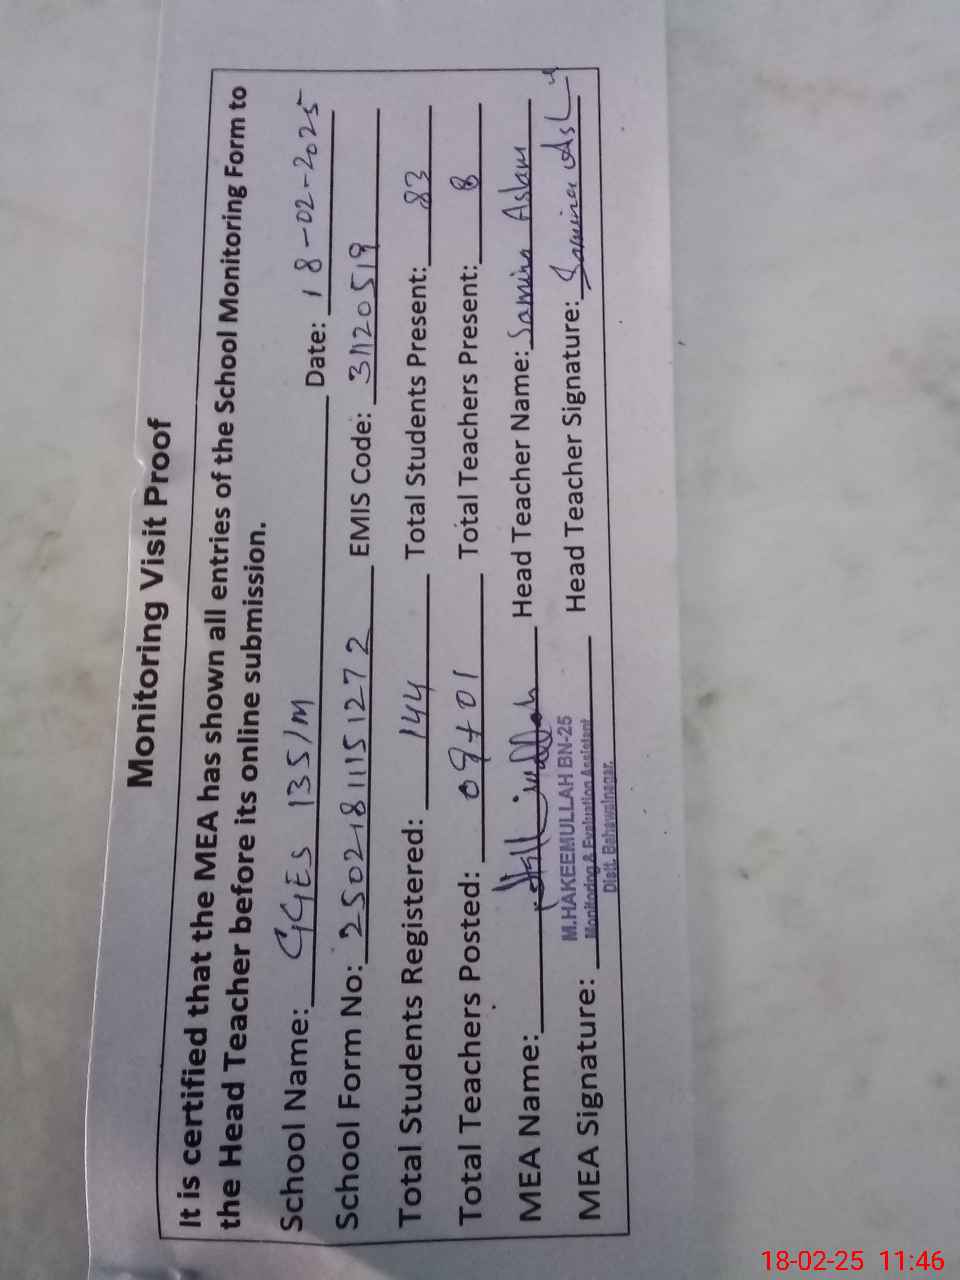 Monitoring Visit Proof
It is certified that the MEA has shown all entries of the School Monitoring Form to
the Head Teacher before its online submission.
School Name: GGES 135/M Date: 18-02-2025
School Form No: 250218111151272 EMIS Code: 31120519
Total Students Registered: 144 Total Students Present: 83
Total Teachers Posted: 09+01 Total Teachers Present: 8
MEA Name: Head Teacher Name: Samina Aslam
M.HAKEEMULLAH BN-25
MEA Signature: Monitoring & Evaluation Assistant Head Teacher Signature: Samina
Distt. Bahawalnagar.
18-02-25 11:46